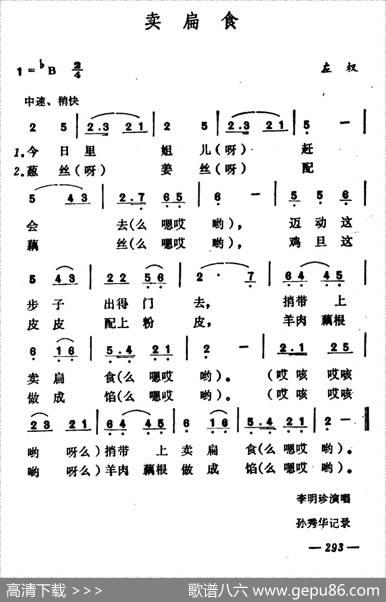 卖扁食
1=♭B 2/4 左权
中速、稍快
2 5 | 2.3 21 | 2 5 | 2.3 21 | 5 — |
1.今日里 姐儿(呀) 赶
2.葱丝(呀) 姜丝(呀) 配
5 43 | 2.7 65 | 5 — | 5 5 6 |
会 去(么嗯哎 哟), 迈动这
藕 丝(么嗯哎 哟), 鸡旦这
5 43 | 22 56 | 2 . 7 | 64 45 |
步子 出得门 去, 捎带上
皮皮 配上粉 皮, 羊肉藕根
6 16 | 5.4 21 | 2 — | 2.1 25 |
卖扁 食(么嗯哎 哟)。 (哎咳哎咳
做成 馅(么嗯哎 哟)。 (哎咳哎咳
23 21 | 64 45 | 6 16 | 5.4 21 | 5 — ‖
哟 呀么)捎带 上卖扁 食(么嗯哎 哟)。
哟 呀么)羊肉 藕根做成 馅(么嗯哎 哟)。
李明珍演唱
孙秀华记录
— 293 —
高清下载 >>> 歌谱八六 www.gepu86.com